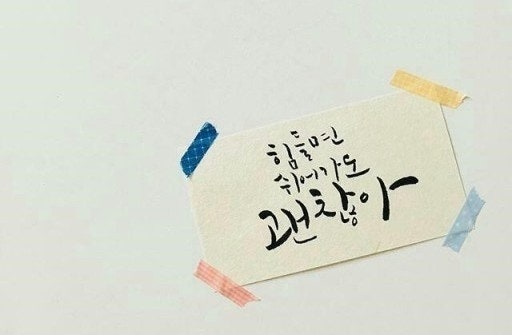 힘들면
쉬어가도
괜찮아